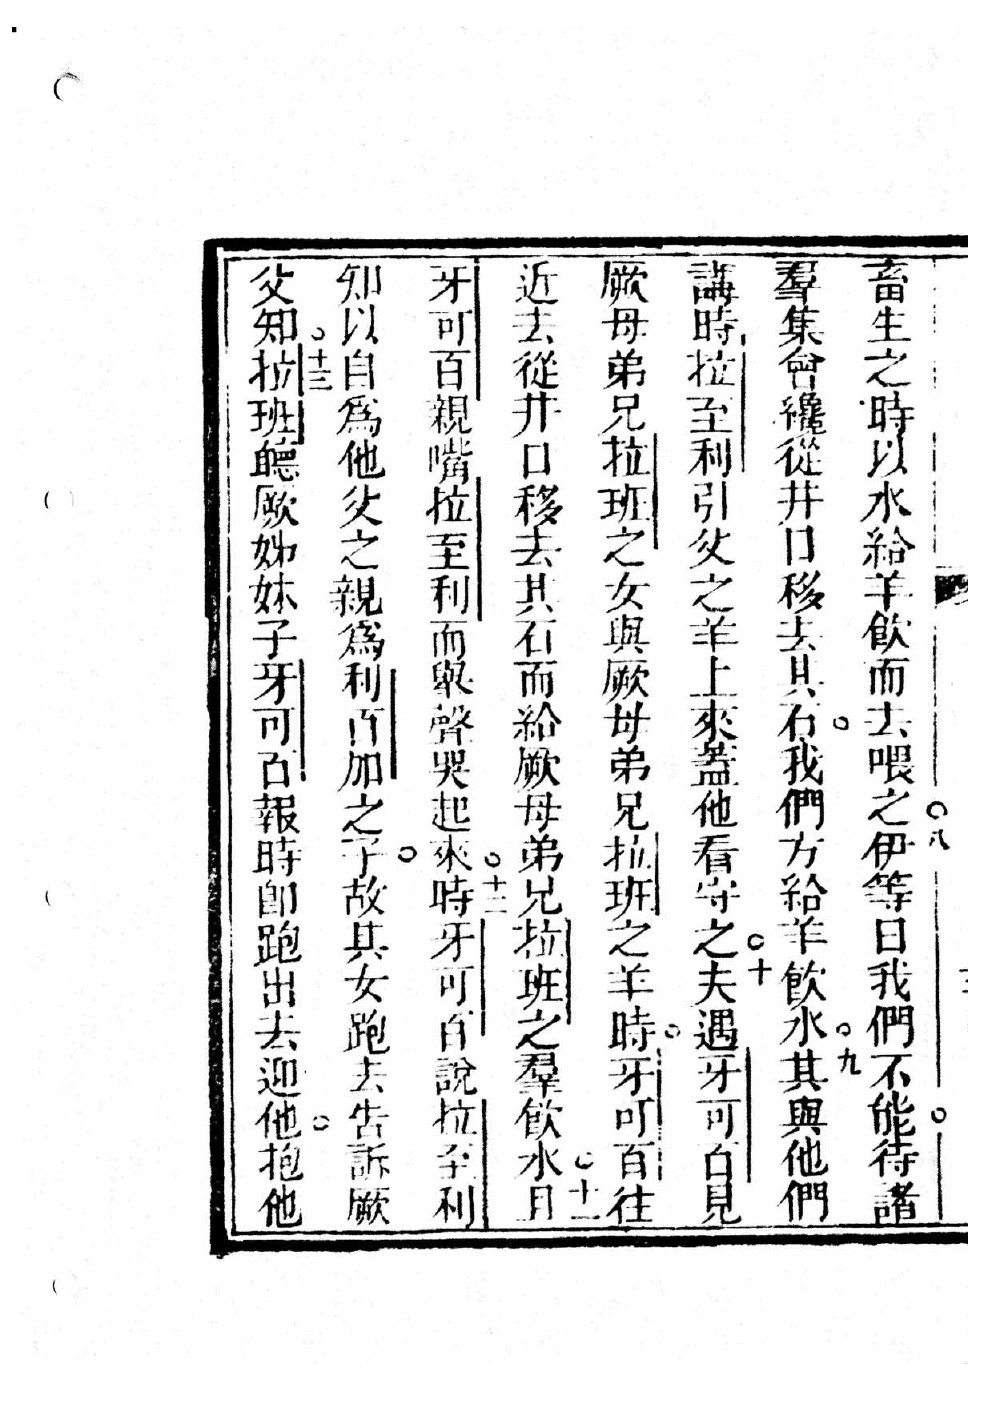 畜生之時以水給羊飲而去喂之○八伊等曰我們不能○待諸
羣集會纔從井口移去其石○我們方給羊飲水○九其與他們
講時拉至利引父之羊上來蓋他看守之○十夫遇牙可百見
厥母弟兄拉班之女與厥母弟兄拉班之羊時○牙可百往
近去從井口移去其石而給厥母弟兄拉班之羣飲水○十一且
牙可百親嘴拉至利而舉聲哭起來○十二時牙可百說拉至利
知以自爲他父之親爲利百加之子○故其女跑去告訴厥
父知○十三拉班聽厥姊妹子牙可百報時卽跑出去迎他○抱他